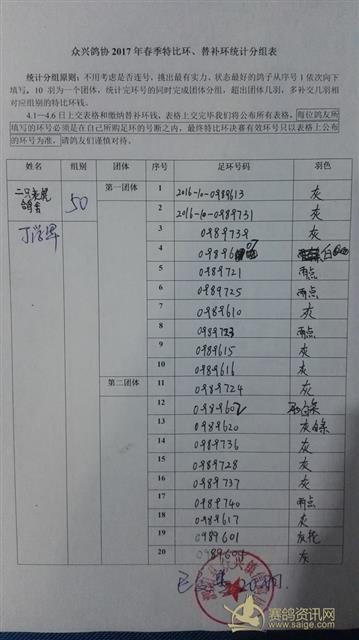 众兴鸽协 2017 年春季特比环、替补环统计分组表
统计分组原则：不用考虑是否连号，挑出最有实力、状态最好的鸽子从序号 1 依次向下
填写，10 羽为一个团体，统计环号的同时完成团体分组，超出团体几羽，多补交几羽相
对应组别的特比环钱。
4.1—4.6 日上交表格和缴纳替补环钱，表格上交完毕我们将公布所有表格，每位鸽友所
填写的环号必须是在自己所购足环的号断之内，最终特比环决赛有效环号只以表格上公布
的环号为准，请鸽友们谨慎对待。
姓名 组别 团体 序号 足环号码 羽色
二只老鼠 50 第一团体 1 2016-10-0989613 灰
鸽舍 2 2016-10-0989731 灰
3 0989739 灰
4 0989
5 0989721 雨点
6 0989725 雨点
7 0989610 灰
8 0989723 雨点
9 0989615 灰
10 0989616 灰
第二团体 11 0989724 灰
12 0989602
13 0989620 灰白条
14 0989736 灰
15 0989728 灰
16 0989737 灰
17 0989740 雨点
18 0989617 灰
19 0989601 灰花
20 灰
赛鸽资讯网
www.saige.com